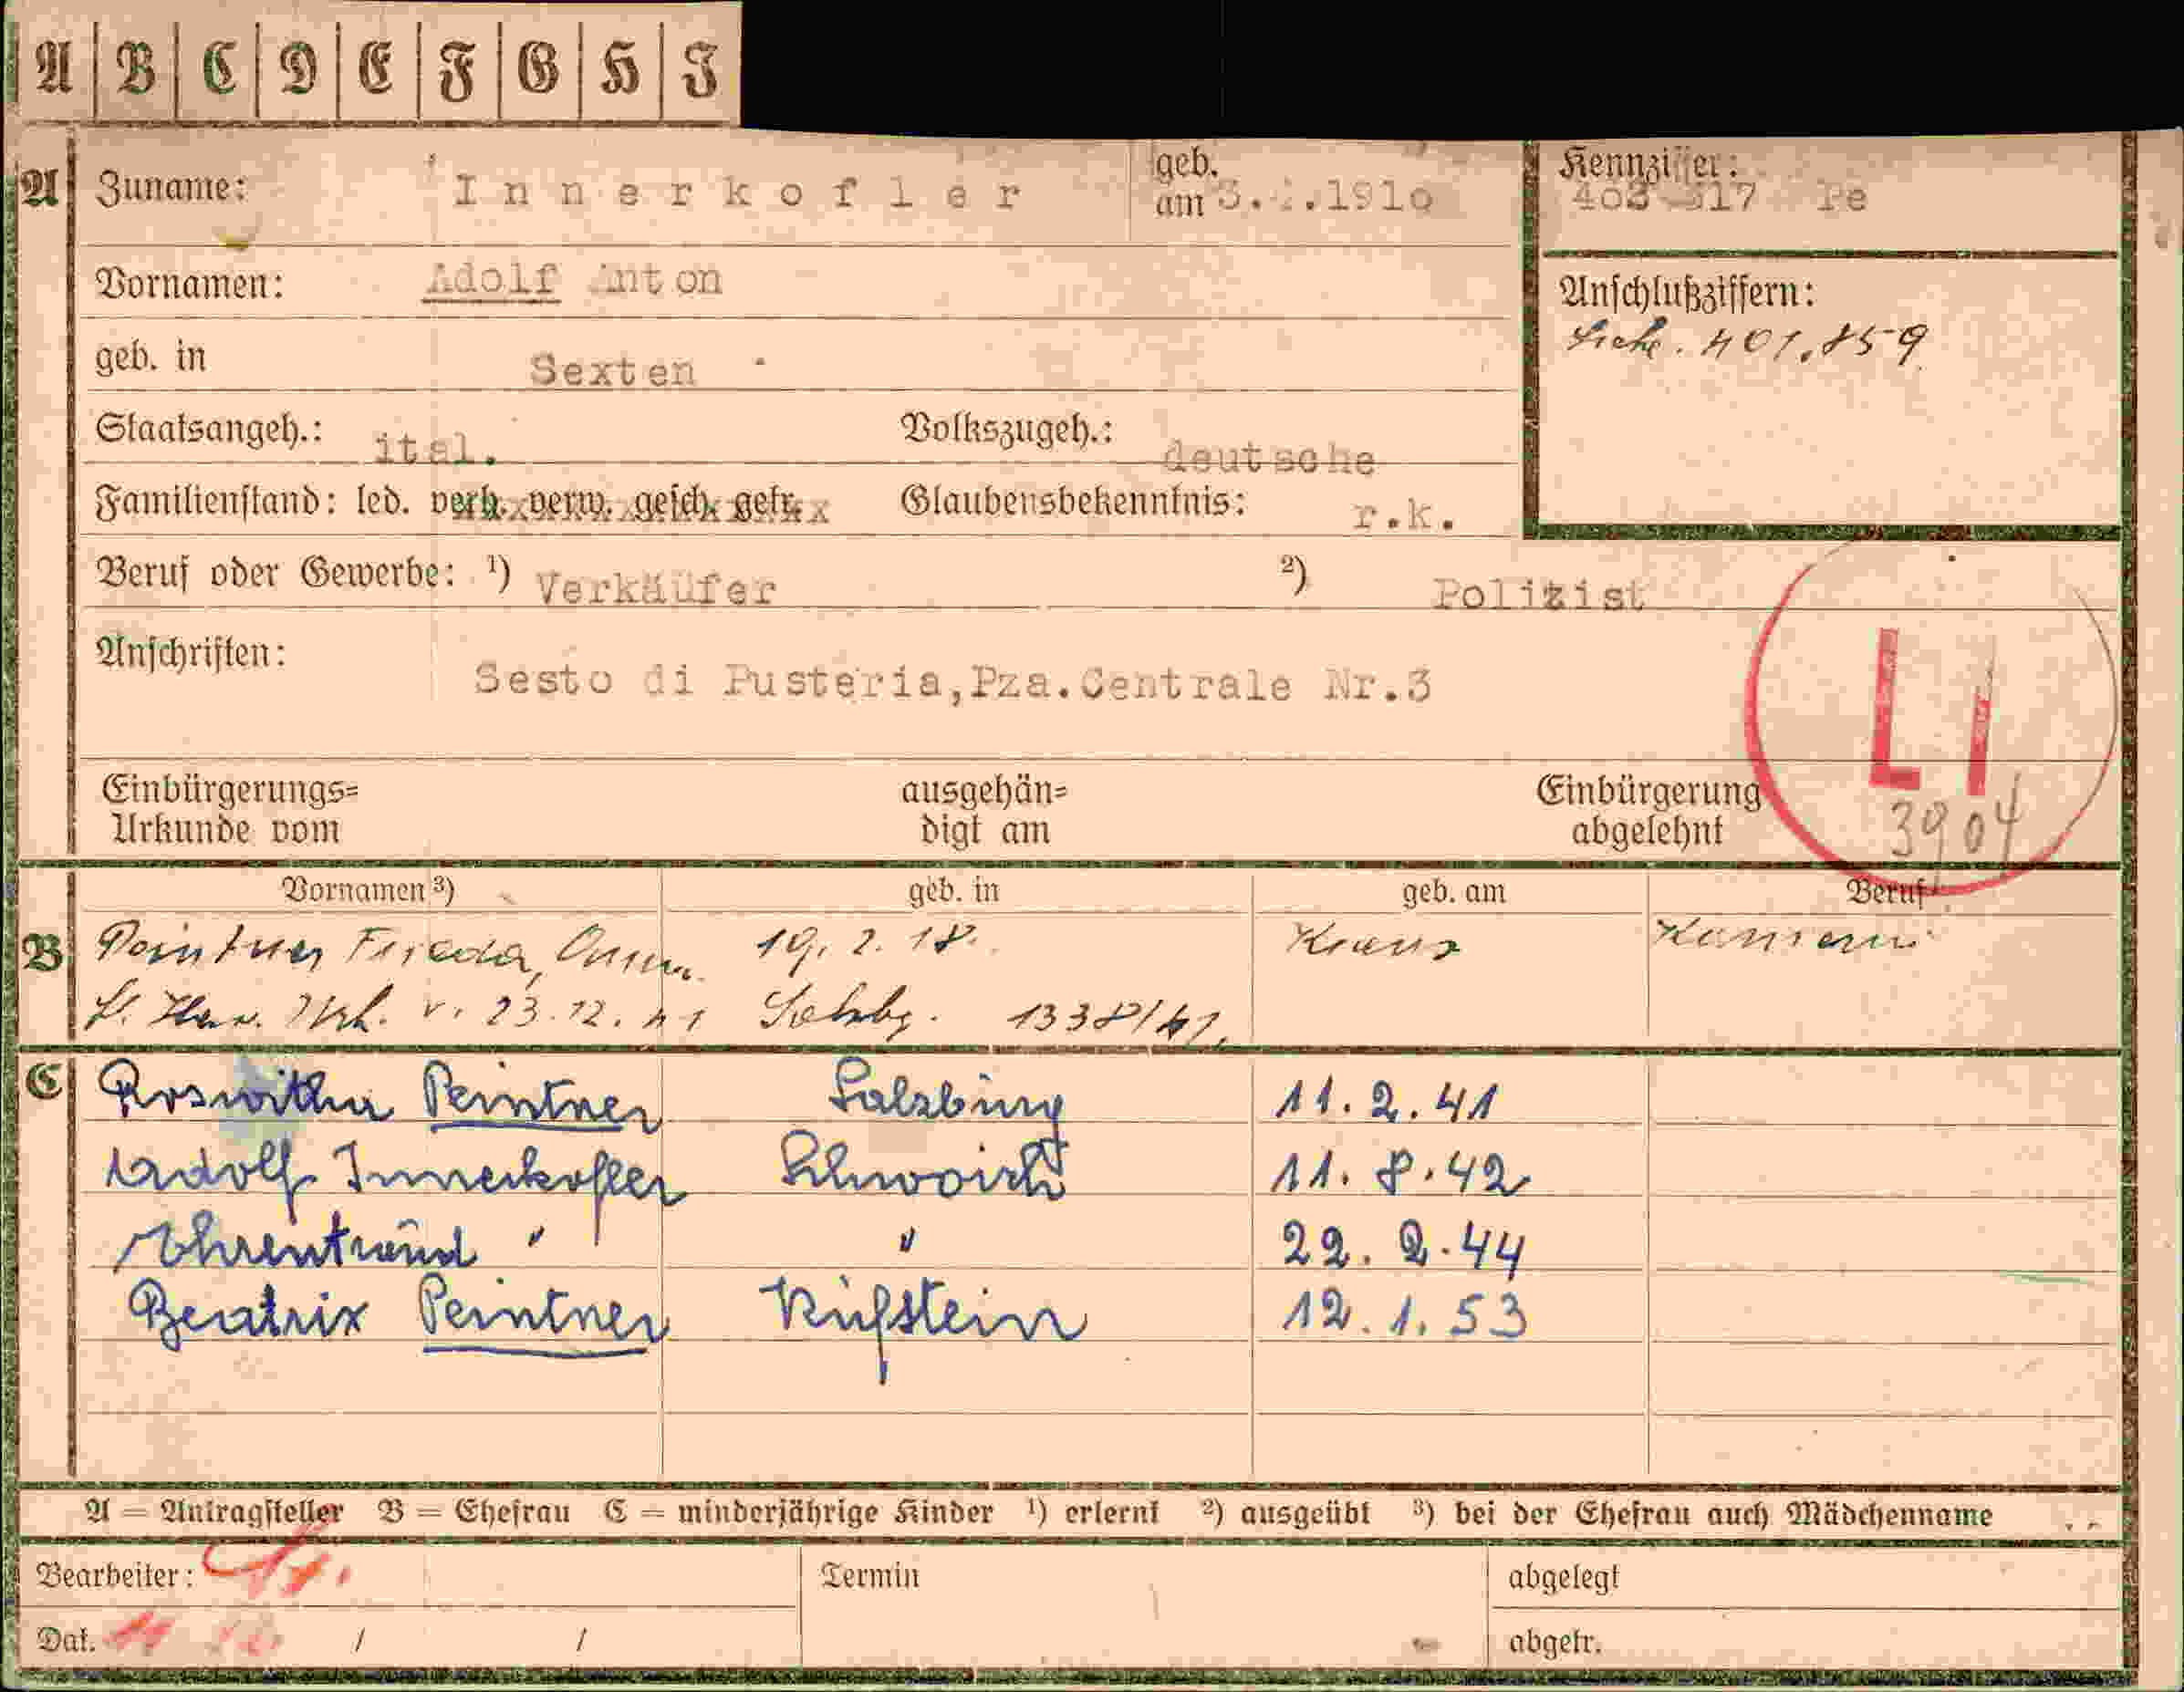 A B C D E F G H I
A Zuname: Innerkofler geb. am 3. .1910 Kennziffer: Pe
Vornamen: Adolf Anton Anschlußziffern:
geb. in Sexten 401.859
Staatsangeh.: ital. Volkszugeh.: deutsche
Familienstand: led. verh. verw. gesch. getr. Glaubensbekenntnis: r.k.
Beruf oder Gewerbe: 1) Verkäufer 2) Polizist
Anschriften: Sesto di Pusteria,Pza.Centrale Nr.3
LI
Einbürgerungs= ausgehän= Einbürgerung
Urkunde vom digt am abgelehnt 3904
Vornamen 3) geb. in geb. am Beruf
B Peintner Frieda, 19. 2. 18.
v. 23.12.41 Salzbg. 1338/41.
C Roswitha Peintner Salzburg 11.2.41
Adolf Innerkofler Schwoich 11.8.42
Ehrentraud " " 22.2.44
Beatrix Peintner Kufstein 12.1.53
A = Antragsteller B = Ehefrau C = minderjährige Kinder 1) erlernt 2) ausgeübt 3) bei der Ehefrau auch Mädchenname
Bearbeiter: Termin abgelegt
Dat. / / abgetr.